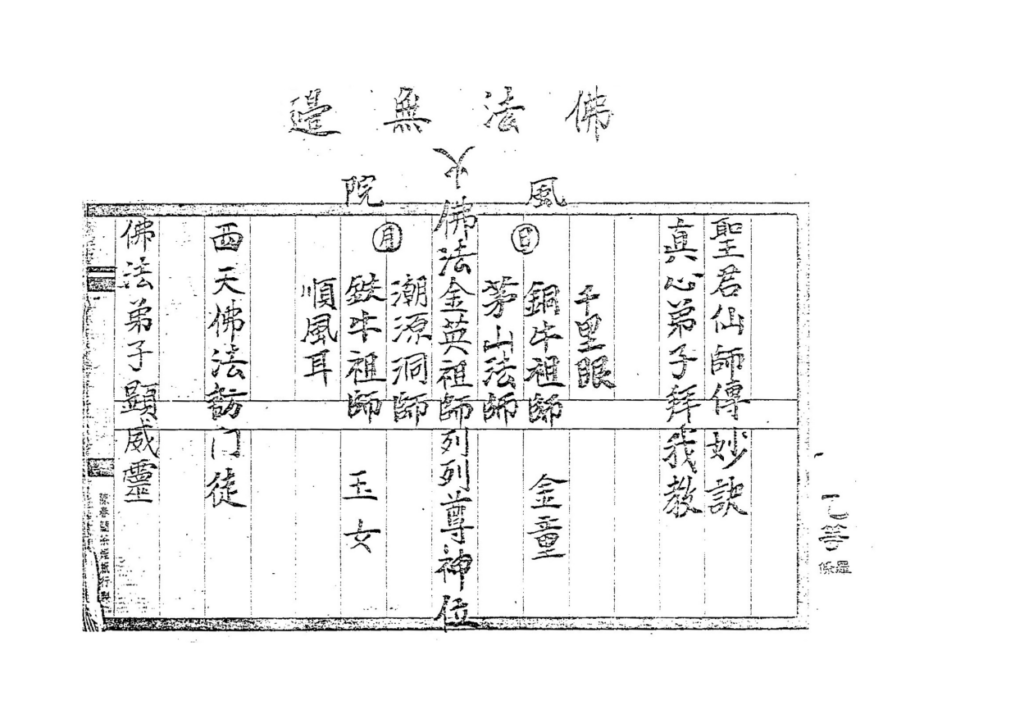 佛法無邊
風
院
聖君仙師傳妙訣
真心弟子拜我教
千里眼
日
銅牛祖師
金童
茅山法師
佛法金英祖師列列尊神位
潮源洞師
月
鉄牛祖師
玉女
順風耳
西天佛法訪门徒
佛法弟子顕威靈